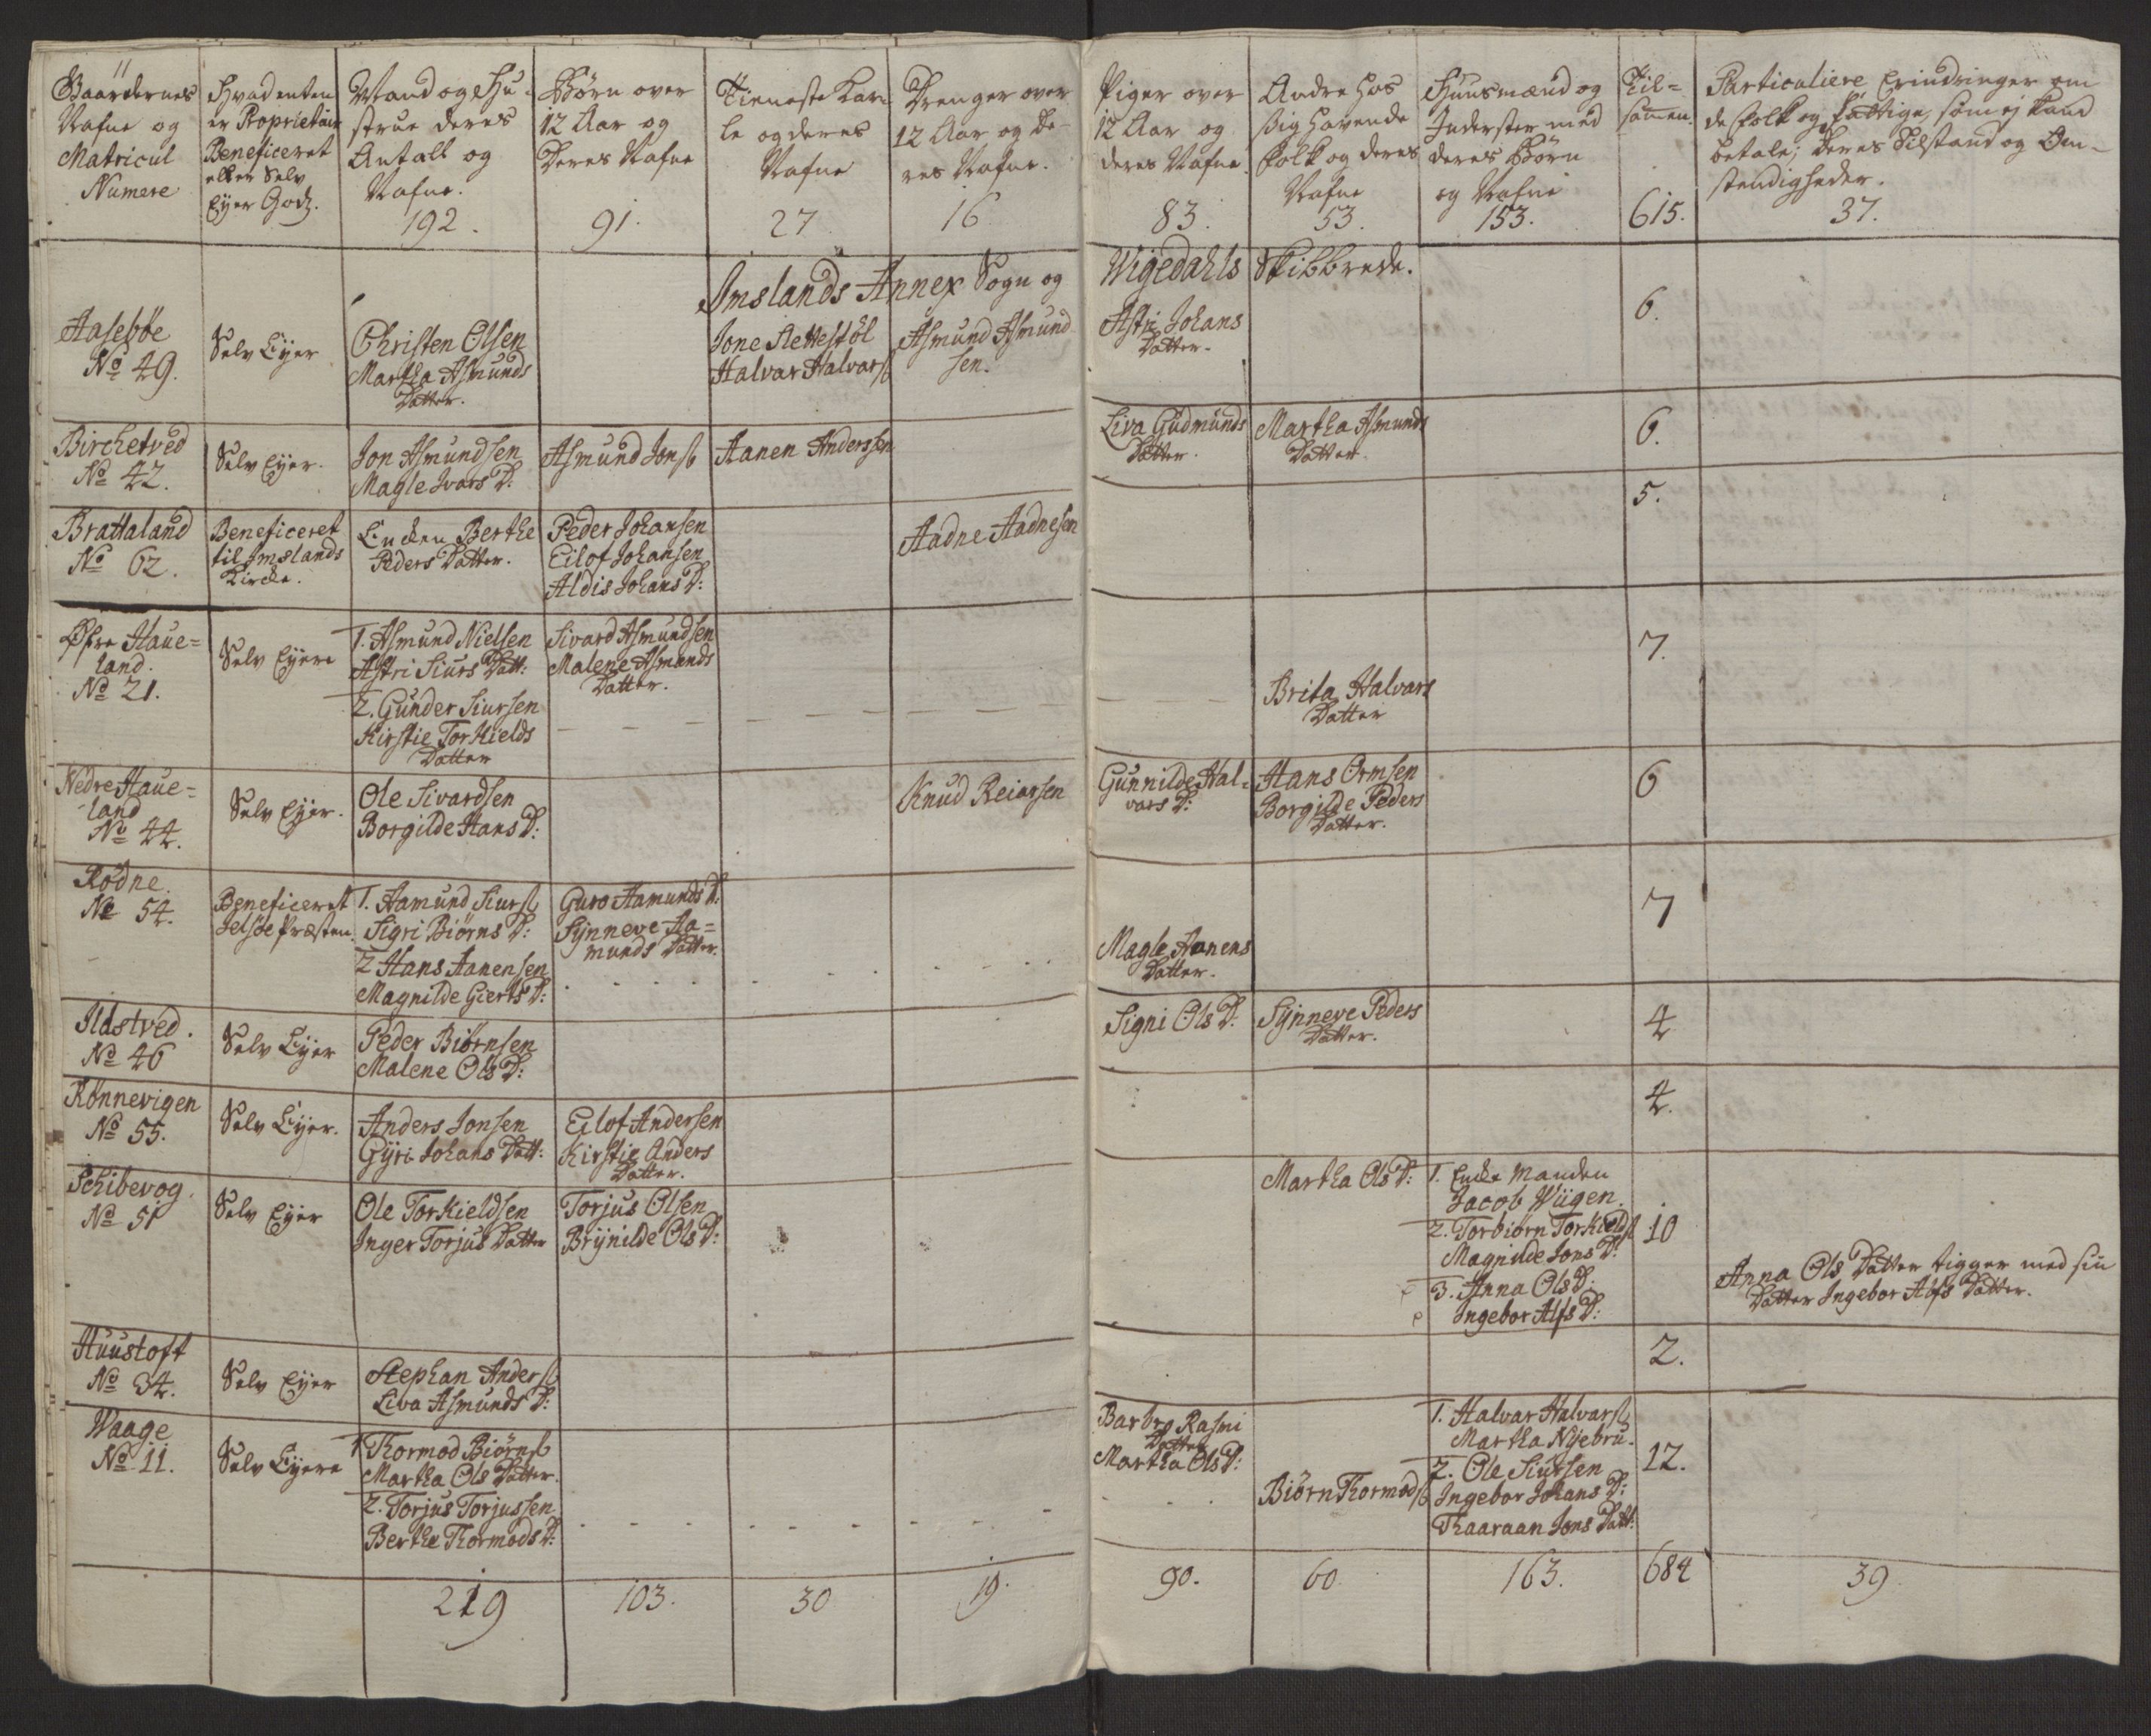 Gaardernes
Nafne og
Matricul
Numere
Hvad enten
er Proprietair
Beneficeret
eller Selv
Eyer Godz.
Mand og Hu-
strue deres
Antall og
Nafne.
192.
Børn over
12 Aar og
Deres Nafne
91.
Tieneste Kar-
le og deres
Nafne
27
Drenger over
12 Aar og De-
res Nafne.
16
Piger over
12 Aar og
deres Nafne.
83.
Andre hos
sig havende
folk og deres
Nafne
53.
Huusmænd og
Inderster med
deres Børn
og Nafne
153.
Til=
sammen.
615.
Particuliere Erindringer om
de folk og fattige, som ej kand
betale; deres Tilstand og Om-
stendigheder.
37.
Imslands Annex Sogn og Wigedahls Skibbrede.
Aasebøe
No 49.
Selv Eyer
Christen Olsen
Martha Asmunds
Datter.
Jone Aettestøl
Halvar Halvars
Asmund Asmund
sen.
Astri Johans
Datter.
6.
Birchetved
No 42.
Selv Eyer.
Jon Asmundsen
Magle Ivars D:
Asmund Jons
Aanen Anderssen
Liva Gudmunds
Datter.
Martha Asmunds
Datter.
6.
Brattaland
No 62.
Beneficeret
til Imslands
Kirche.
Encken Berthe
Peders Datter.
Peder Johansen
Eilof Johansen
Aldis Johans D:
Aadne Aadnesen
5.
Øfre Haue=
land.
No 21.
Selv Eyere
1. Asmund Nielsen
Astri Siurs Datt:
2. Gunder Siursen
Kirstie Torkields
Datter
Sivard Asmundsen
Malene Asmunds
Datter.
Brita Halvars
Datter
7.
Nedre Haue=
land
No 44.
Selv Eyer.
Ole Sivardsen
Borgilde Hans D:
Knud Reiarsen
Gunnilde Hal=
vars D:
Hans Ormsen
Borgilde Peders
Datter.
6
Rødne.
No 54.
Beneficeret
Jelsøe Præsten.
1. Aamund Siurs
Sigri Biørns D:
2 Hans Aanensen
Magnilde Gierts D:
Guro Aamunds D:
Synneve Aa=
munds Datter.
Magle Aanens
Datter.
7
Ildstved.
No 46
Selv Eyer
Peder Biørnsen
Malene Ols D:
Signi Ols D:
Synneve Peders
Datter.
4
Rønnevigen
No 55.
Selv Eyer.
Anders Jonsen
Gyri Johans Datt:
Eilof Andersen
Kirstie Anders
Datter.
4.
Schibevog.
No 51
Selv Eyer
Ole Torkieldsen
Inger Torjus Datter
Torjus Olsen
Brynilde Ols D:
Martha Ols D:
1. Encke Manden
Jacob Wiigen.
2. Torbiørn Torkields
Magnilde Jons D:
3. Anna Ols D:
Ingebor Alfs D:
10
Anna Ols Datter tigger med sin
Datter Ingebor Alfs Datter.
Huustoft
No 34.
Selv Eyer
Stephan Anders
Liva Asmunds D:
2.
Waage
No 11.
Selv Eyere
1 Thormod Biørns
Martha Ols Datter.
2. Torjus Torjussen
Berthe Thormods D:
Barbro Rasmi
Datter
Martha Ols D:
Biørn Thormods
1. Halvar Halvars
Martha Nyebru.
2. Ole Siursen
Ingebor Johans D:
Thaaraan Jons Datt:
12.
219
103.
30
19.
90.
60
163.
684
39